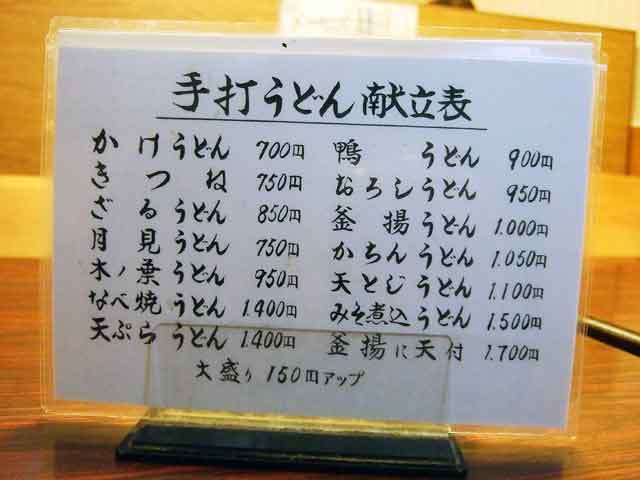 手打うどん献立表
かけうどん 700円
きつね 750円
ざるうどん 850円
月見うどん 750円
木ノ葉うどん 950円
なべ焼うどん 1.400円
天ぷらうどん 1.400円
鴨うどん 900円
おろしうどん 950円
釜揚うどん 1.000円
かちんうどん 1.050円
天とじうどん 1.100円
みそ煮込うどん 1.500円
釜揚に天付 1.700円
大盛り 150円アップ